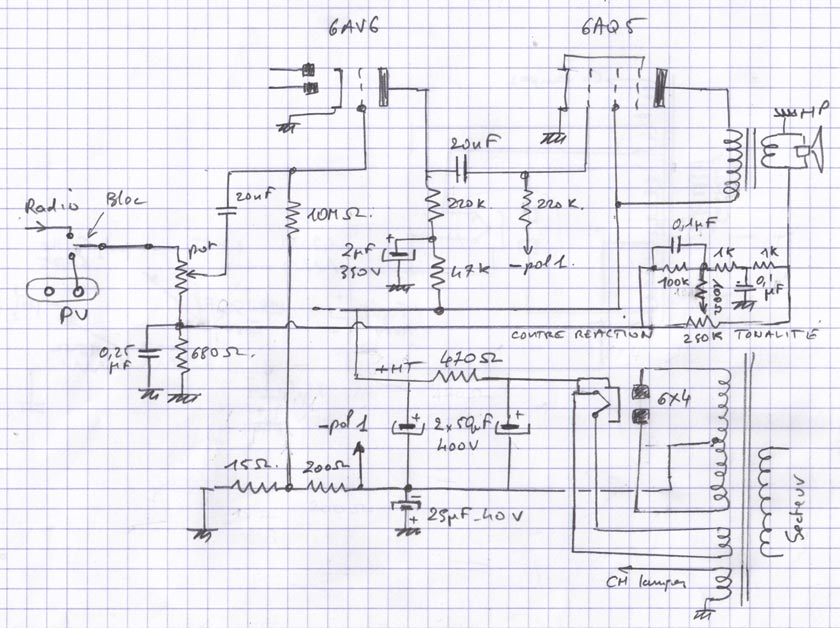 6AV6
6AQ5
HP
20nF
Radio
Bloc
20nF
10MΩ.
220K.
220K.
0,1µF
pot
2µF
350V
47K
-pol 1.
100K
1K
1K
0,1
µF
PV
CONTRE REACTION
250K
TONALITÉ
0,25
µF
680Ω.
+HT
470Ω
6X4
-pol 1
2x50µF
400V
15Ω.
200Ω
25µF-40V
Secteur
CH lampes